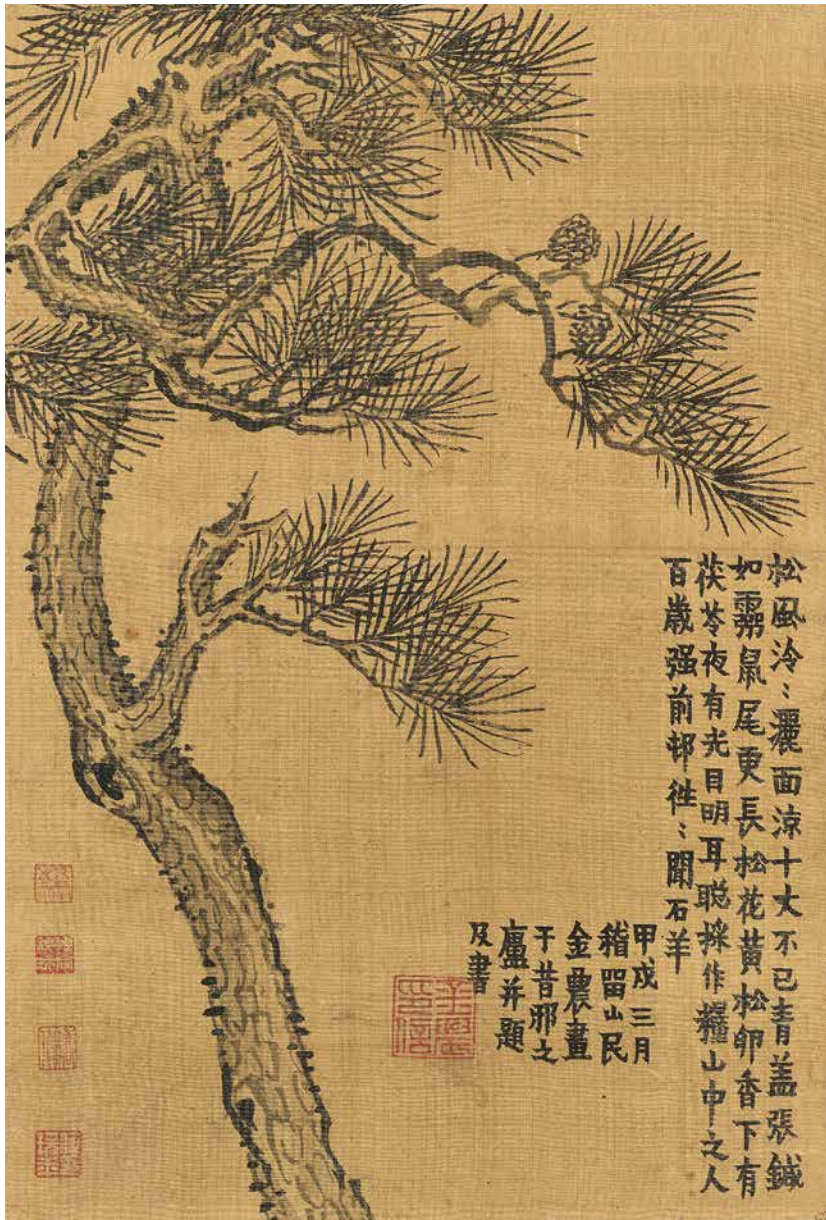 松風泠〻灑面涼十丈不已青盖張鍼
如鼠尾更長松花黃松卵香下有
茯苓夜有光目明耳聪採作糧山中之人
百歲强前邨徃〻聞石羊
甲戌三月
稽畱山民
金農畫
于昔邪之
廬并題
及書
金農
印信